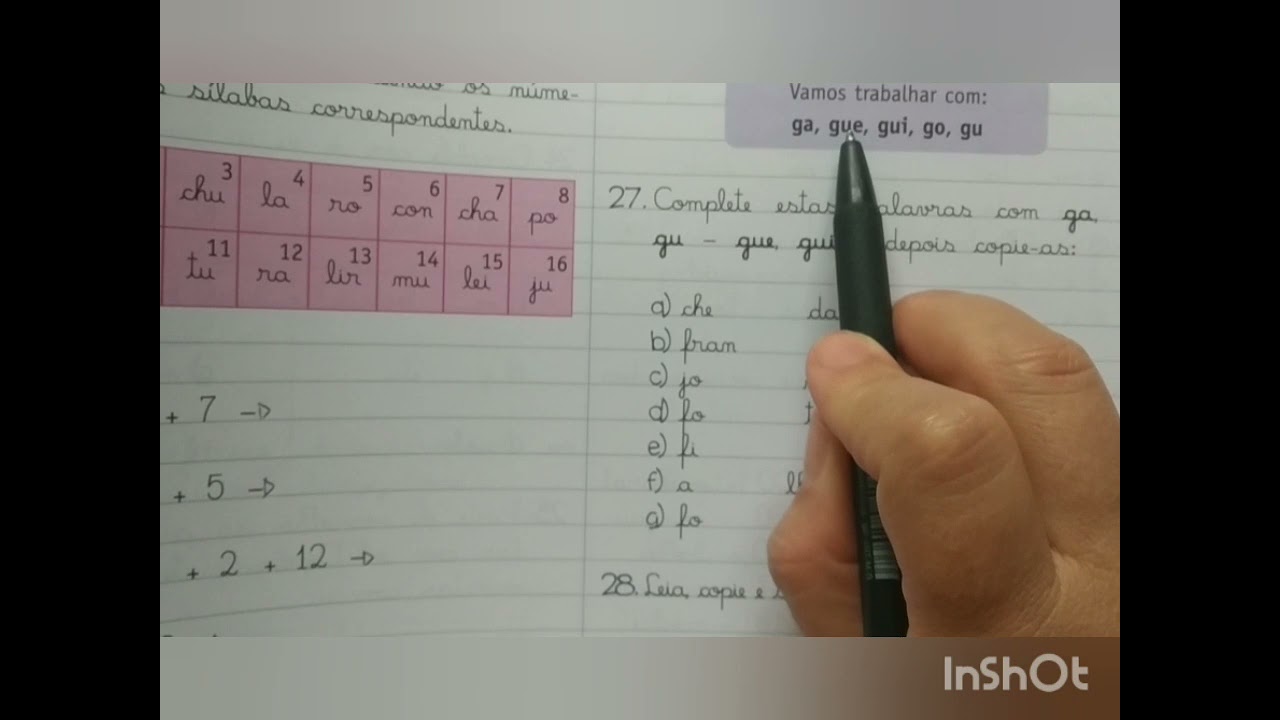 os núme-
sílabas correspondentes.
3 chu 4 la 5 ro 6 con 7 cha 8 po
11 tu 12 ra 13 lir 14 mu 15 lei 16 ju
+ 7 →
+ 5 →
+ 2 + 12 →
Vamos trabalhar com:
ga, gue, gui, go, gu
27. Complete estas alavras com ga,
gu - gue, gui depois copie-as:
a) che da
b) fran
c) jo
d) fo
e) fi
f) a
g) fo
28. Leia, copie e
InShOt